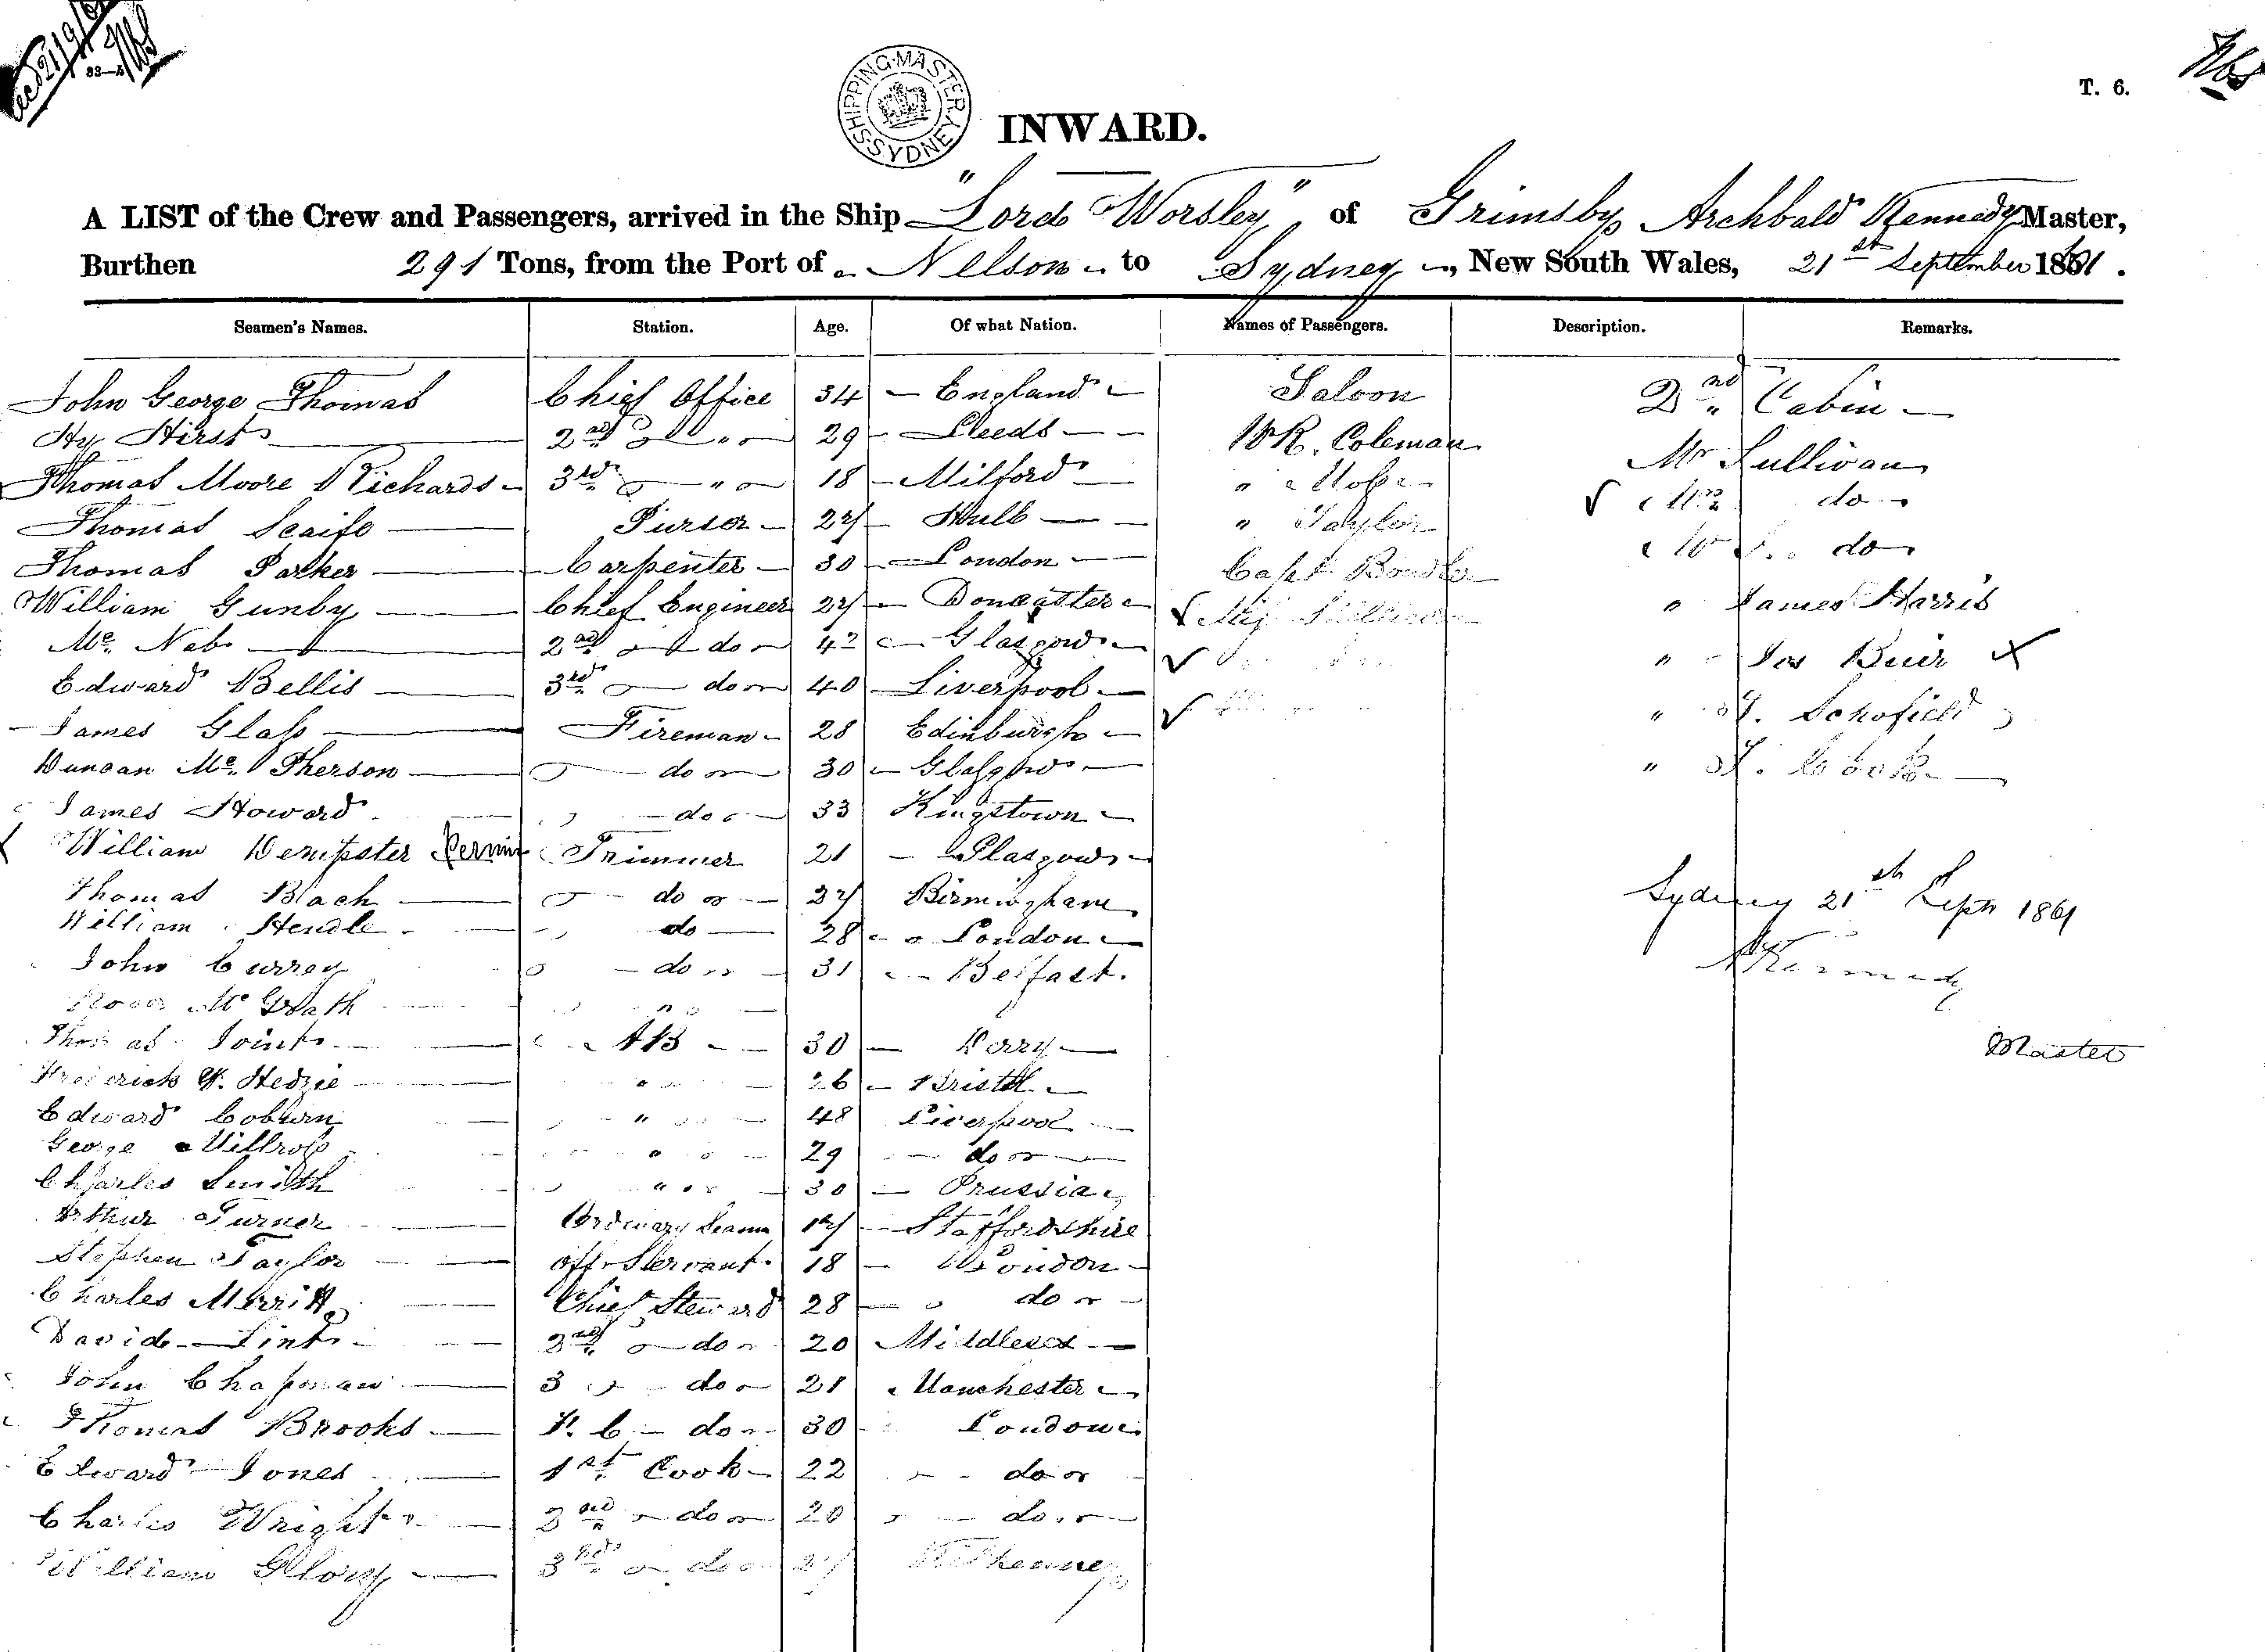 83—
T. 6.
SHIPPING MASTER SYDNEY
INWARD.
A LIST of the Crew and Passengers, arrived in the Ship "Lord Worsley" of Grimsby, Archbald Kennedy Master,
Burthen 291 Tons, from the Port of Nelson to Sydney, New South Wales, 21st September 1861.
Seamen's Names. Station. Age. Of what Nation. Names of Passengers. Description. Remarks.
John George Thomas Chief Office 34 England Saloon 2nd Cabin
Hy Hirst 2nd " 29 Leeds Mr. Coleman Mr Sullivan
Thomas Moore Richards 3rd " 18 Milford " Mrs do
Thomas Scaife Purser 27 Hull " Taylor do
Thomas Parker Carpenter 30 London Capt. " James Harris
William Gunby Chief Engineer 27 Doncaster
Mc. Nab 2nd do 42 Glasgow " Jas
Edward Bellis 3rd do 40 Liverpool " Schofield
James Glass Fireman 28 Edinburgh
Duncan Mc. Pherson do 30 Glasgow "
James Howard do 33 Kingstown
William Dempster Trimmer 21 Glasgow
Thomas Blach do 27 Birmingham Sydney 21st Septr 1861
William Hendle do 28 London
John Currey do 31 Belfast. AKennedy
Mc Grath
Thomas Joint AB 30 Kerry Master
Frederick 26 Bristol
Edward Coburn " 48 Liverpool
George Millross " 29 do
Charles Smith " 30 Prussia
Arthur Turner Ordinary Seaman 17 Staffordshire
Stephen Taylor Offr Servant 18 London
Charles Merritt Chief Steward 28 do
David Lint 2nd do 20 Middlesex
John Chapman 3 do 21 Manchester
Thomas Brooks F. C. do 30 London
Edward Jones 1st Cook 22 do
Charles Wright 2nd do 20 do
William Glory 3rd do 27